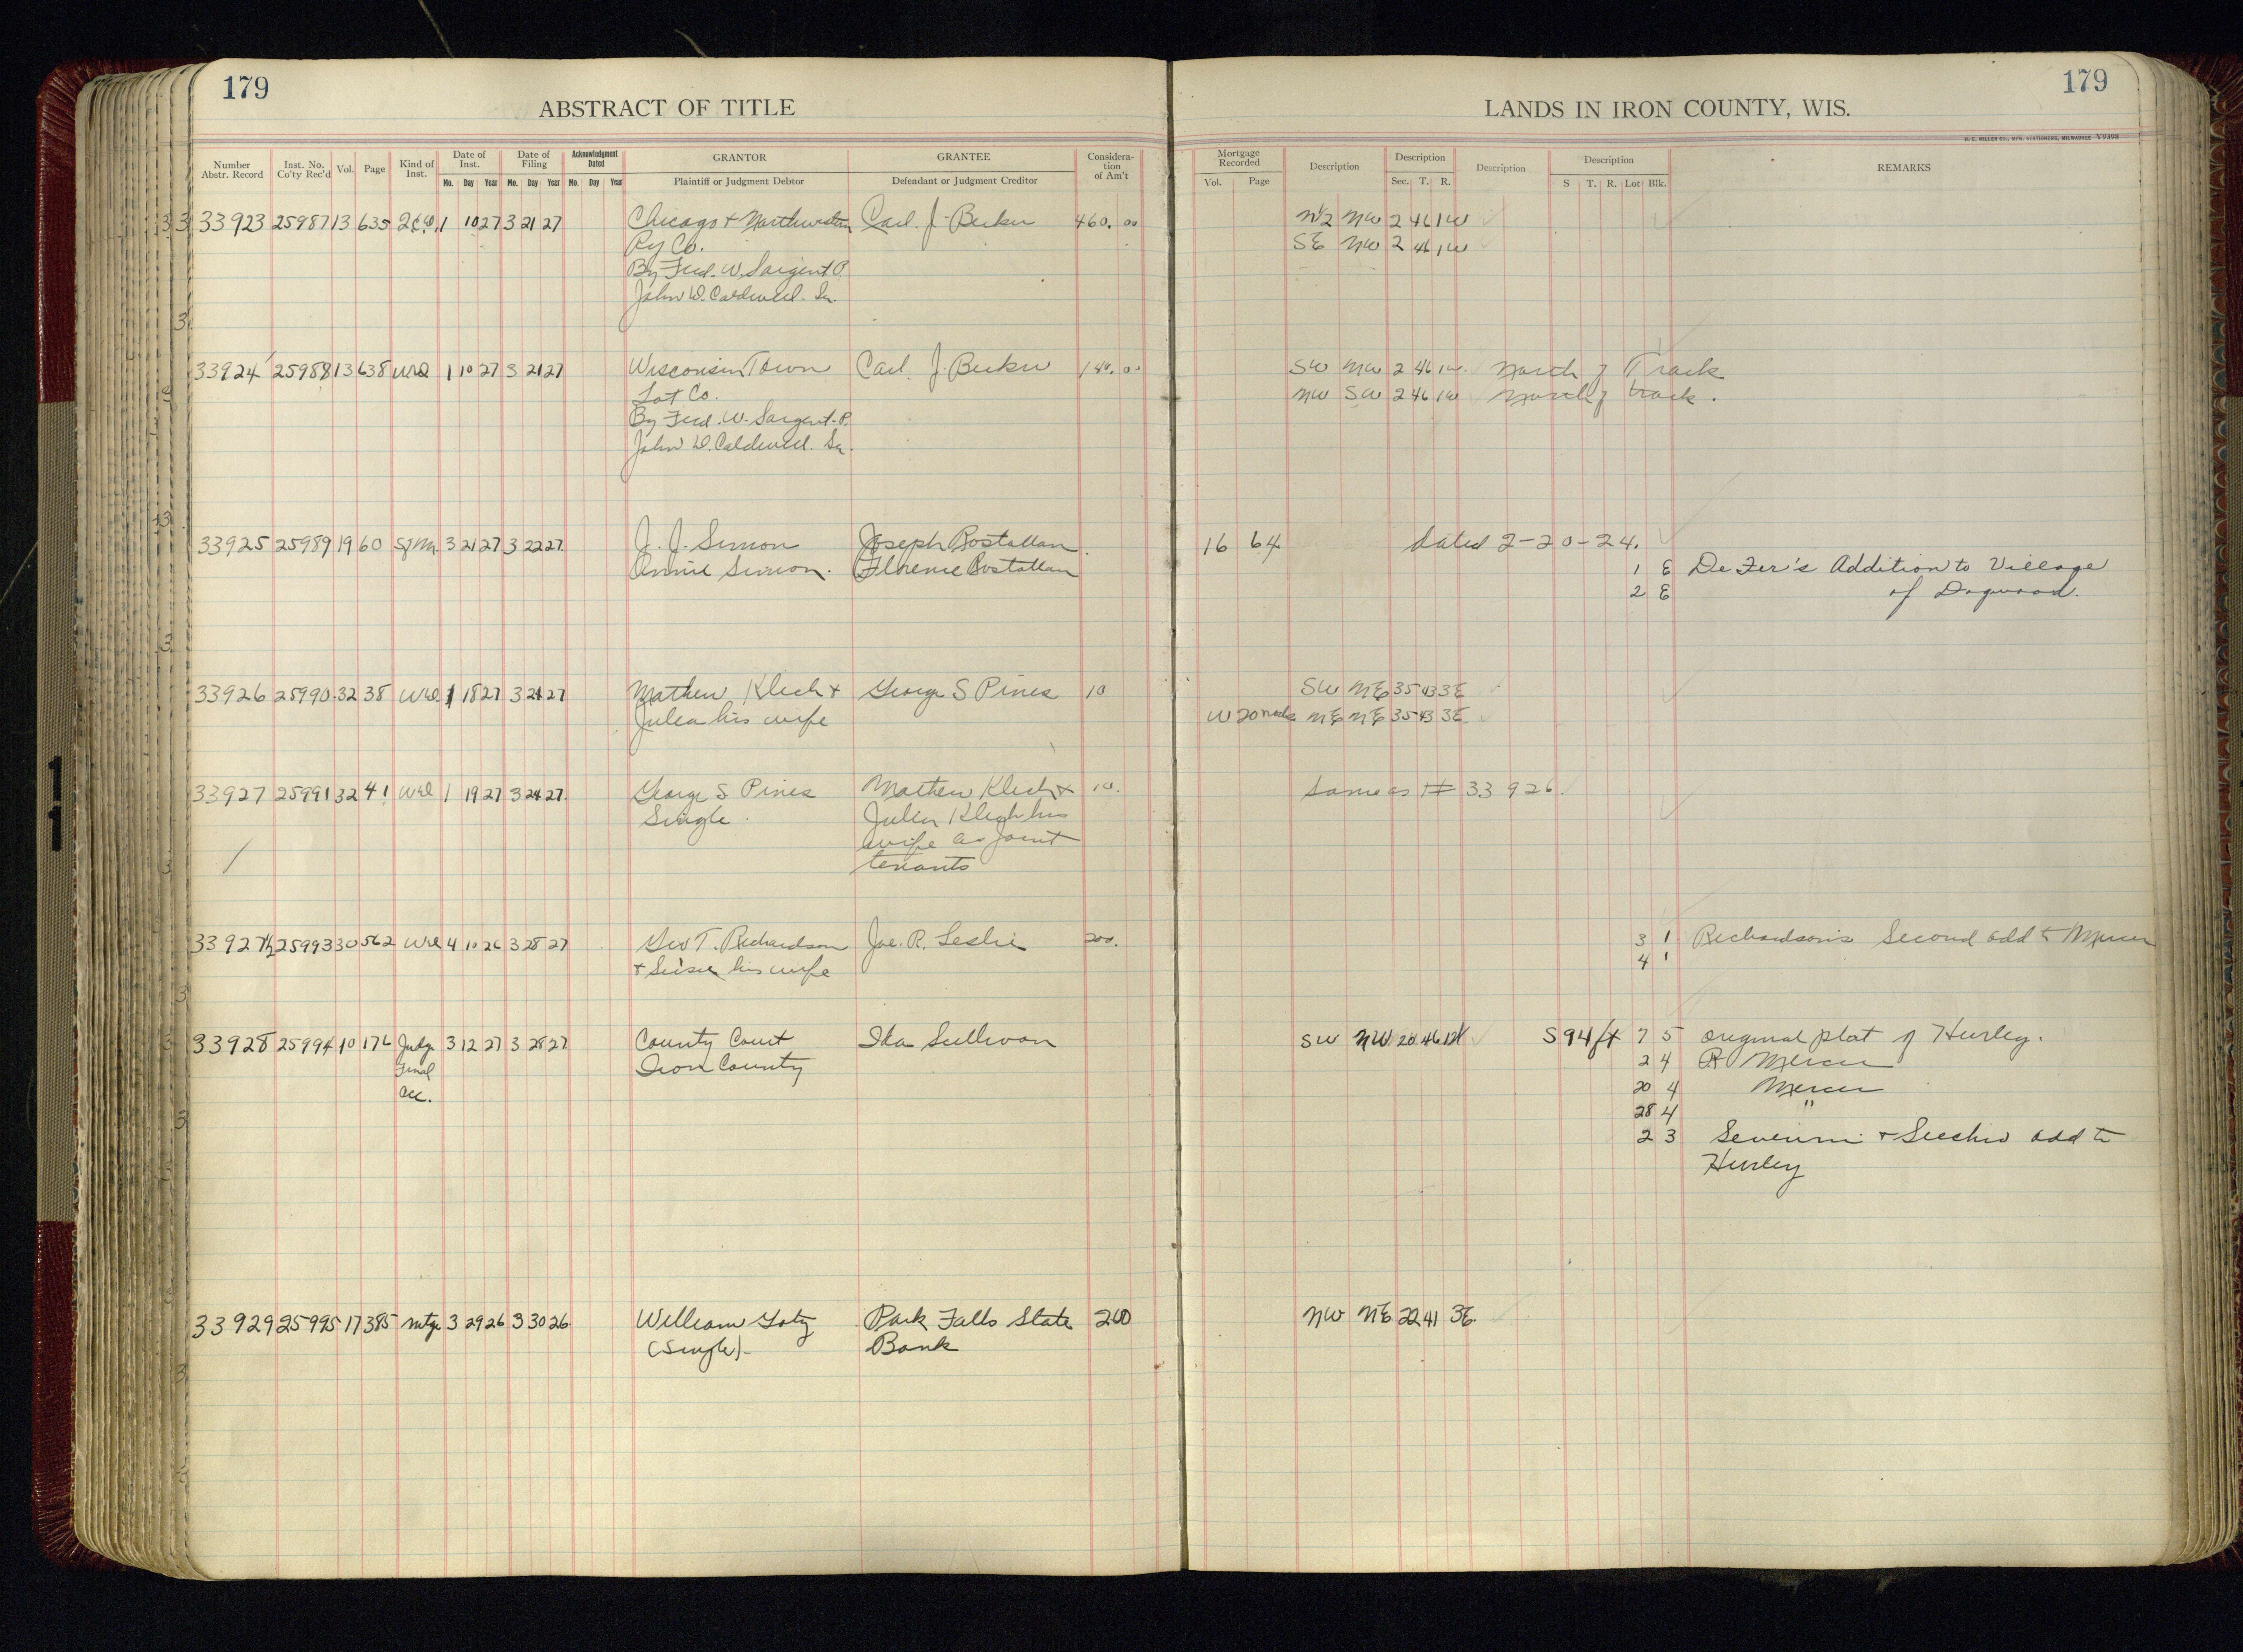 179
179
ABSTRACT OF TITLE
LANDS IN IRON COUNTY, WIS.
H. C. MILLER CO., MFG. STATIONERS, MILWAUKEE
Number Abstr. Record Inst. No. Co'ty Rec'd Vol. Page Kind of Inst. Date of Inst. Mo. Day Year Date of Filing Mo. Day Year Acknowledgment Dated Mo. Day Year GRANTOR Plaintiff or Judgment Debtor GRANTEE Defendant or Judgment Creditor Considera-tion of Am't
Mortgage Recorded Vol. Page Description Description Sec. T. R. Description Description S T. R. Lot Blk. REMARKS
33923 25987 13 635 1 10 27 3 21 27 Chicago & Northwestern Carl J. Becker 460.00 N½ NW 2 46 1W
Ry Co. SE NW 2 46 1W
By Fred. W. Sargent P.
John D. Caldwell. Sec.
33924 25988 13 638 WD 1 10 27 3 21 27 Wisconsin Town Carl J. Becker 140.00 SW NW 2 46 1W North of Track
Lot Co. NW SW 2 46 1W North of track.
By Fred. W. Sargent. P.
John D. Caldwell. Sec.
33925 25989 19 60 Sf M. 3 21 27 3 22 27 J. J. Simon Joseph Bostallan 16 64 Dated 2-20-24.
Annie Simon. Florence Bostallan 1 E De Fer's Addition to Village
2 E of Dogwood.
33926 25990 32 38 WD 1 18 27 3 24 27 Mathew Klech & George S Pines 10 SW NE 35 43 3E
Julea his wife W 20 rods NE NE 35 43 3E
33927 25991 32 41 WD 1 19 27 3 24 27 George S Pines Mathew Klech & 10. Same as # 33926
Single. Julia Klech his
wife as joint
tenants
33927½ 25993 30 562 WD 4 10 26 3 28 27 Geo T. Richardson Joe. R. Leslie 200. 3 1 Richardson's Second add to Mercer
& his wife 4 1
33928 25994 10 176 Judge 3 12 27 3 28 27 County Court Ida Sullivan SW NW 20 46 S 94 ft 7 5 original plat of Hurley.
Final Iron County 2 4 Mercer
acc. 20 4 Mercer
28 4 "
2 3 & add to
Hurley
33929 25995 17 385 mtge 3 29 26 3 30 26 William Park Falls State 200 NW NE 22 41 3E.
(Single) Bank